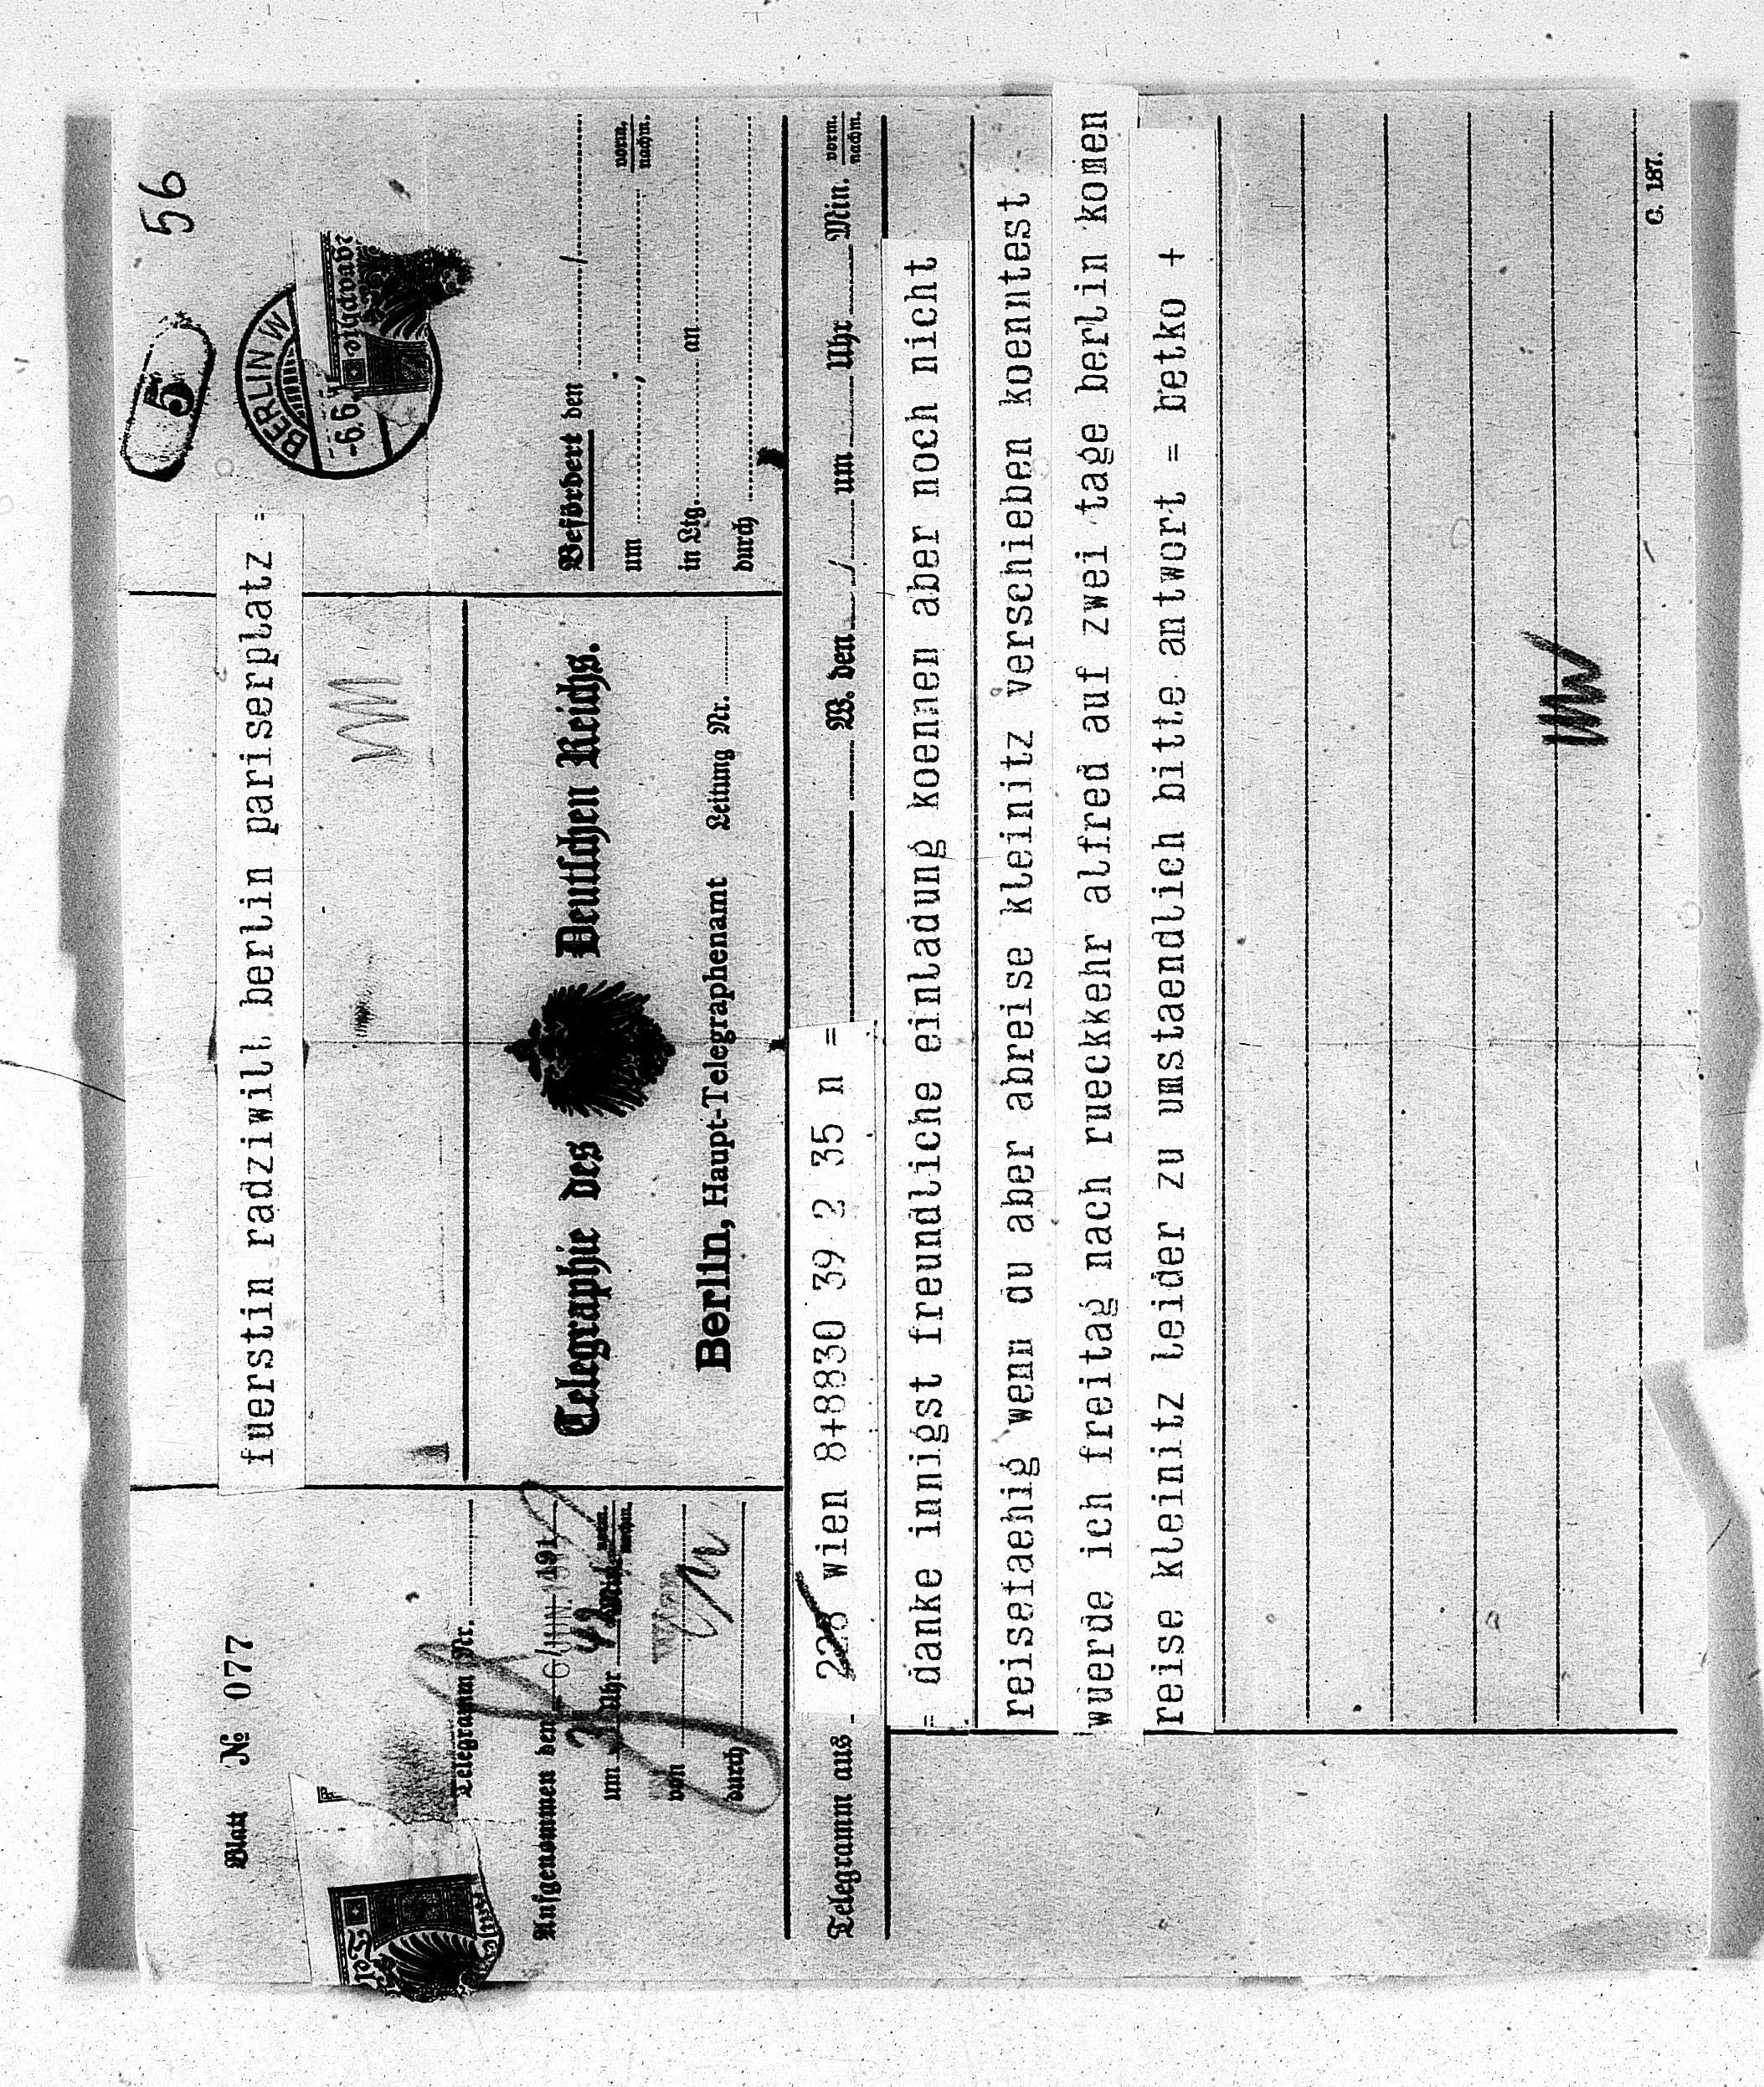 56
5
BERLIN W
9 9-
Blatt № 077
fuerstin radziwill berlin pariserplatz =
Telegramm Nr.
Aufgenommen den 191
um 3 Uhr 42 Min. vorm. nachm.
von Wien
durch
Telegraphie des Deutschen Reichs.
Berlin, Haupt-Telegraphenamt Leitung Nr.
Befördert den /
um , vorm. nachm.
in Ltg. an
durch
Telegramm aus 228 wien 8+8830 39 2 35 n = W. den / um Uhr Min. vorm. nachm.
= danke innigst freundliche einladung koennen aber noch nicht
reisefaehig wenn du aber abreise kleinitz verschieben koenntest
wuerde ich freitag nach rueckkehr alfred auf zwei tage berlin komen
reise kleinitz leider zu umstaendlich bitte antwort = betko +
C. 187.